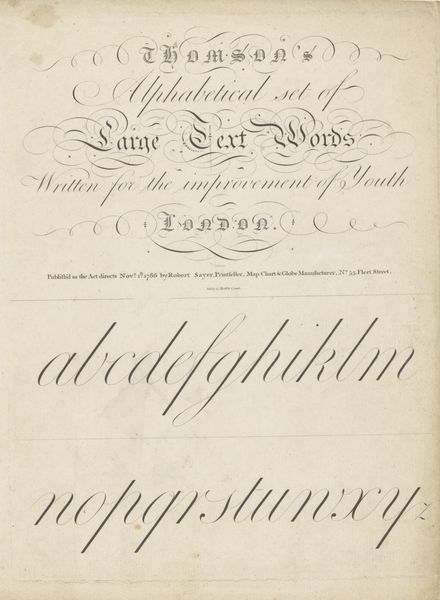 THOMSON'S
Alphabetical set of
Large Text Words
Written for the improvement of Youth
LONDON.
Publish'd as the Act directs Nov.r 1.st 1786 by Robert Sayer, Printseller, Map Chart & Globe Manufacturer, N.o 53, Fleet Street.
abcdefghiklm
nopqrstuwxyz